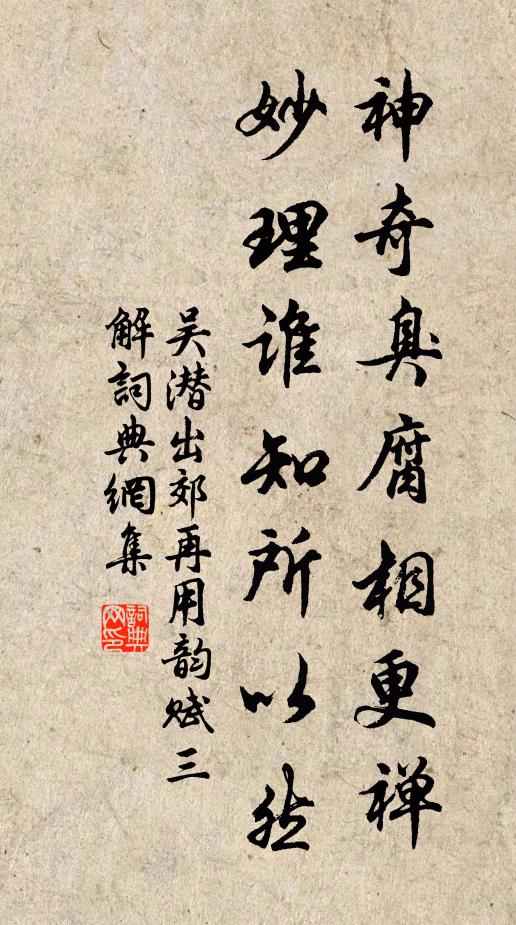 神奇臭腐相更禅
妙理谁知所以然
吴潜出郊再用韵赋三
解詞典網集
詞典网印